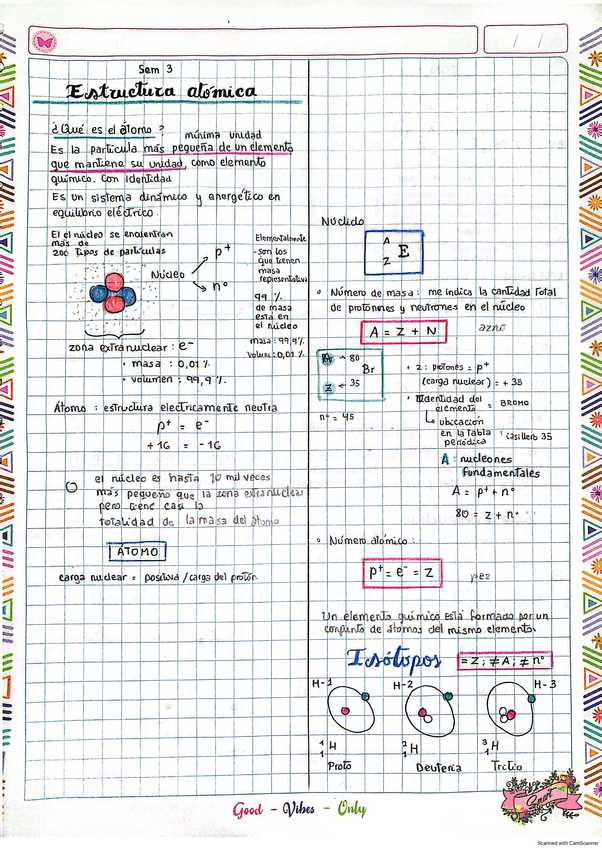 Sem 3
Estructura atómica
¿Qué es el átomo ?
mínima unidad
Es la partícula más pequeña de un elemento
que mantiene su unidad, como elemento
químico. Con identidad
Es un sistema dinámico y energético en
equilibrio eléctrico.
El el núcleo se encuentran
más de
200 tipos de partículas
Núcleo
p+
n°
Elementalmente
-son los
que tienen
masa
representativa
99 %
de masa
esta en
el núcleo
masa: 99,9%
Volume: 0,01%
zona extranuclear : e-
• masa : 0,01 %
• volumen : 99,9 %
Átomo : estructura electricamente neutra
p+ = e-
+16 = -16
el núcleo es hasta 10 mil veces
más pequeño que la zona extranuclear
pero tiene casi la
totalidad de la masa del átomo
ÁTOMO
carga nuclear = positiva / carga del protón
Nuclido
A
Z
E
Número de masa : me indica la cantidad total
de protónnes y neutrones en el núcleo
A = Z + N
azno
A → 80
Br
Z ← 35
n° = 45
• z : protones = p+
(carga nuclear) = + 35
• Identidad del
elemento = BROMO
ubicación
en la tabla : casillero 35
periódica
A : nucleones
fundamentales
A = p+ + n°
80 = z + n°
Número atómico :
p+ = e- = Z
pez
Un elemento químico está formado por un
conjunto de átomos del mismo elemento.
Isótopos
= Z ; ≠ A ; ≠ n°
H-1
H-2
H-3
1 1 H
2 1 H
3 1 H
Proto
Deuteria
Trctio
Good - Vibes - Only
Scanned with CamScanner